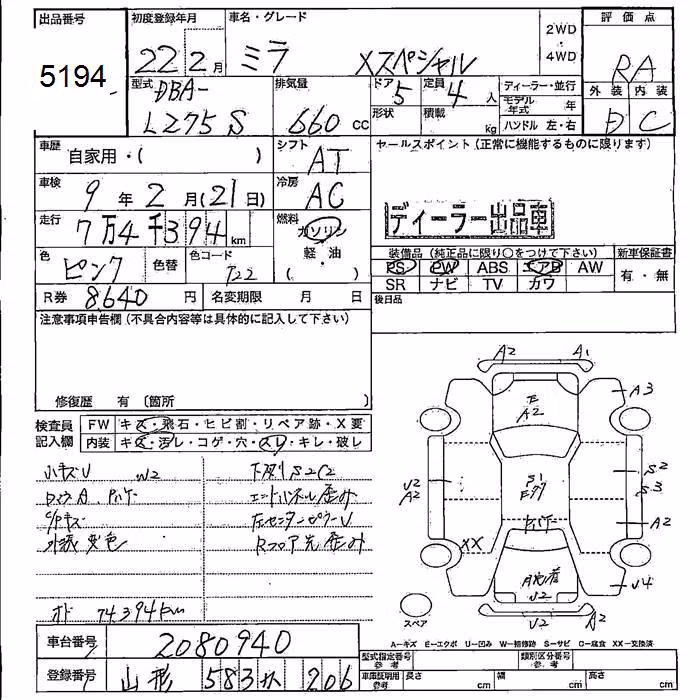 出品番号 初度登録年月 車名・グレード 2WD・4WD 評価点
5194 22 2月 ミラ Xスペシャル RA
外装 内装
D C
型式 DBA- 排気量 ドア 5 定員 4 人 ディーラー・並行
L275S 660 cc 形状 積載 kg モデル年式 年
ハンドル 左・右
車歴 自家用・( ) シフト AT セールスポイント(正常に機能するものに限ります)
車検 9年2月(21日) 冷房 AC
走行 7万4千394km 燃料 ガソリン・軽・油・( ) ディーラー出品車
色 ピンク 色替 色コード T22
装備品(純正品に限り○をつけて下さい) 新車保証書
PS PW ABS エアB AW 有・無
SR ナビ TV カワ
R券 8640円 名変期限 月 日 後日品
注意事項申告欄(不具合内容等は具体的に記入して下さい)
修復歴 有(箇所 )
検査員記入欄 FW キズ・飛石・ヒビ割・リペア跡・X要
内装 キズ・汚レ・コゲ・穴・スレ・キレ・破レ
小キズU W2 下廻りS2C2
エンドパネル歪み
左センターピラーU
外装変色 Rフロア先歪み
オド 74394km
A2 A1
E A2
A3
U2 A2
S1
S2
S3
A2
XX
U4
U2
U2 A2
スペア
A－キズ E－エクボ U－凹み W－補修跡 S－サビ C－腐食 XX－交換済
車台番号 2080940
登録番号 山形 583 206
型式指定番号 参考 類別区分番号 参考
車庫証明用 参考 長さ cm 幅 cm 高さ cm